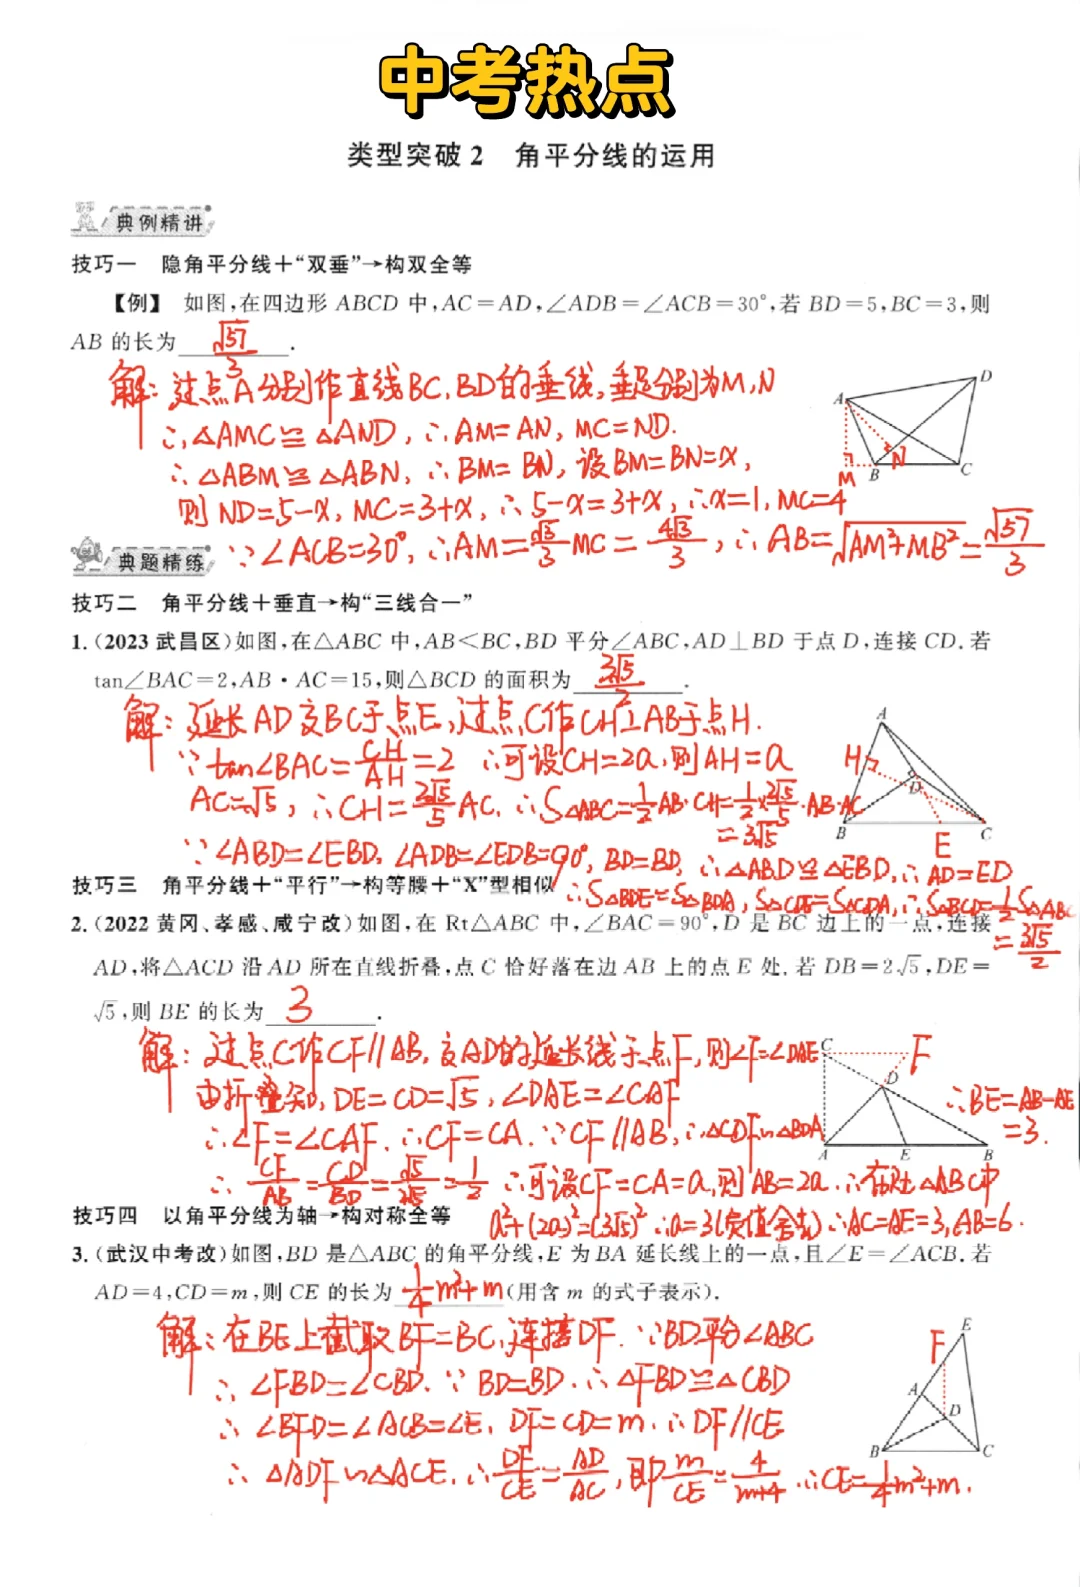 中考热点
类型突破2 角平分线的运用
典例精讲
技巧一 隐角平分线+“双垂”→构双全等
【例】 如图,在四边形ABCD中,AC=AD,∠ADB=∠ACB=30°,若BD=5,BC=3,则
AB的长为 √57/3 .
解:过点A分别作直线BC,BD的垂线,垂足分别为M,N
∴△AMC≌△AND,∴AM=AN,MC=ND.
∴△ABM≌△ABN,∴BM=BN,设BM=BN=x,
则ND=5-x,MC=3+x,∴5-x=3+x,∴x=1,MC=4
∵∠ACB=30°,∴AM=√3/3MC=4√3/3,∴AB=√(AM²+MB²)=√57/3
A
D
M
B
N
C
典题精练
技巧二 角平分线+垂直→构“三线合一”
1.(2023武昌区)如图,在△ABC中,AB<BC,BD平分∠ABC,AD⊥BD于点D,连接CD.若
tan∠BAC=2,AB·AC=15,则△BCD的面积为 3√5/2 .
解:延长AD交BC于点E,过点C作CH⊥AB于点H.
∵tan∠BAC=CH/AH=2 ∴可设CH=2a,则AH=a
AC=√5,∴CH=2√5/5AC,∴S△ABC=1/2AB·CH=1/2×2√5/5·AB·AC
=3√5
∵∠ABD=∠EBD,∠ADB=∠EDB=90°,BD=BD,∴△ABD≌△EBD,∴AD=ED
∴S△BDE=S△BDA,S△CDE=S△CDA,∴S△BCD=1/2S△ABC
=3√5/2
A
H
D
B
E
C
技巧三 角平分线+“平行”→构等腰+“X”型相似
2.(2022黄冈、孝感、咸宁改)如图,在Rt△ABC中,∠BAC=90°,D是BC边上的一点,连接
AD,将△ACD沿AD所在直线折叠,点C恰好落在边AB上的点E处.若DB=2√5,DE=
√5,则BE的长为 3 .
解:过点C作CF∥AB,交AD的延长线于点F,则∠F=∠DAE
由折叠知,DE=CD=√5,∠DAE=∠CAF
∴∠F=∠CAF.∴CF=CA.∵CF∥AB,∴△CDF∽△BDA
∴CF/AB=CD/BD=√5/2√5=1/2 ∴可设CF=CA=a,则AB=2a.∴在Rt△ABC中
a²+(2a)²=(3√5)² ∴a=3(负值舍去)∴AC=AE=3,AB=6.
∴BE=AB-AE
=3.
C
F
D
A
E
B
技巧四 以角平分线为轴→构对称全等
3.(武汉中考改)如图,BD是△ABC的角平分线,E为BA延长线上的一点,且∠E=∠ACB.若
AD=4,CD=m,则CE的长为 1/4m²+m (用含m的式子表示).
解:在BE上截取BF=BC,连接DF.∵BD平分∠ABC
∴∠FBD=∠CBD.∵BD=BD.∴△FBD≌△CBD
∴∠BFD=∠ACB=∠E,DF=CD=m.∴DF∥CE
∴△ADF∽△ACE.∴DF/CE=AD/AC,即m/CE=4/m+4.∴CE=1/4m²+m.
E
F
A
D
B
C